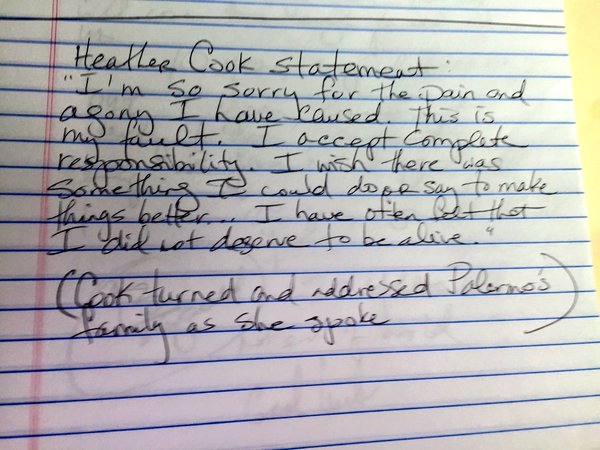 Heather Cook statement:
"I'm so sorry for the pain and
agony I have caused. This is
my fault. I accept complete
responsibility. I wish there was
something I could do or say to make
things better... I have often felt that
I did not deserve to be alive."
(Cook turned and addressed Palermo's
family as she spoke)